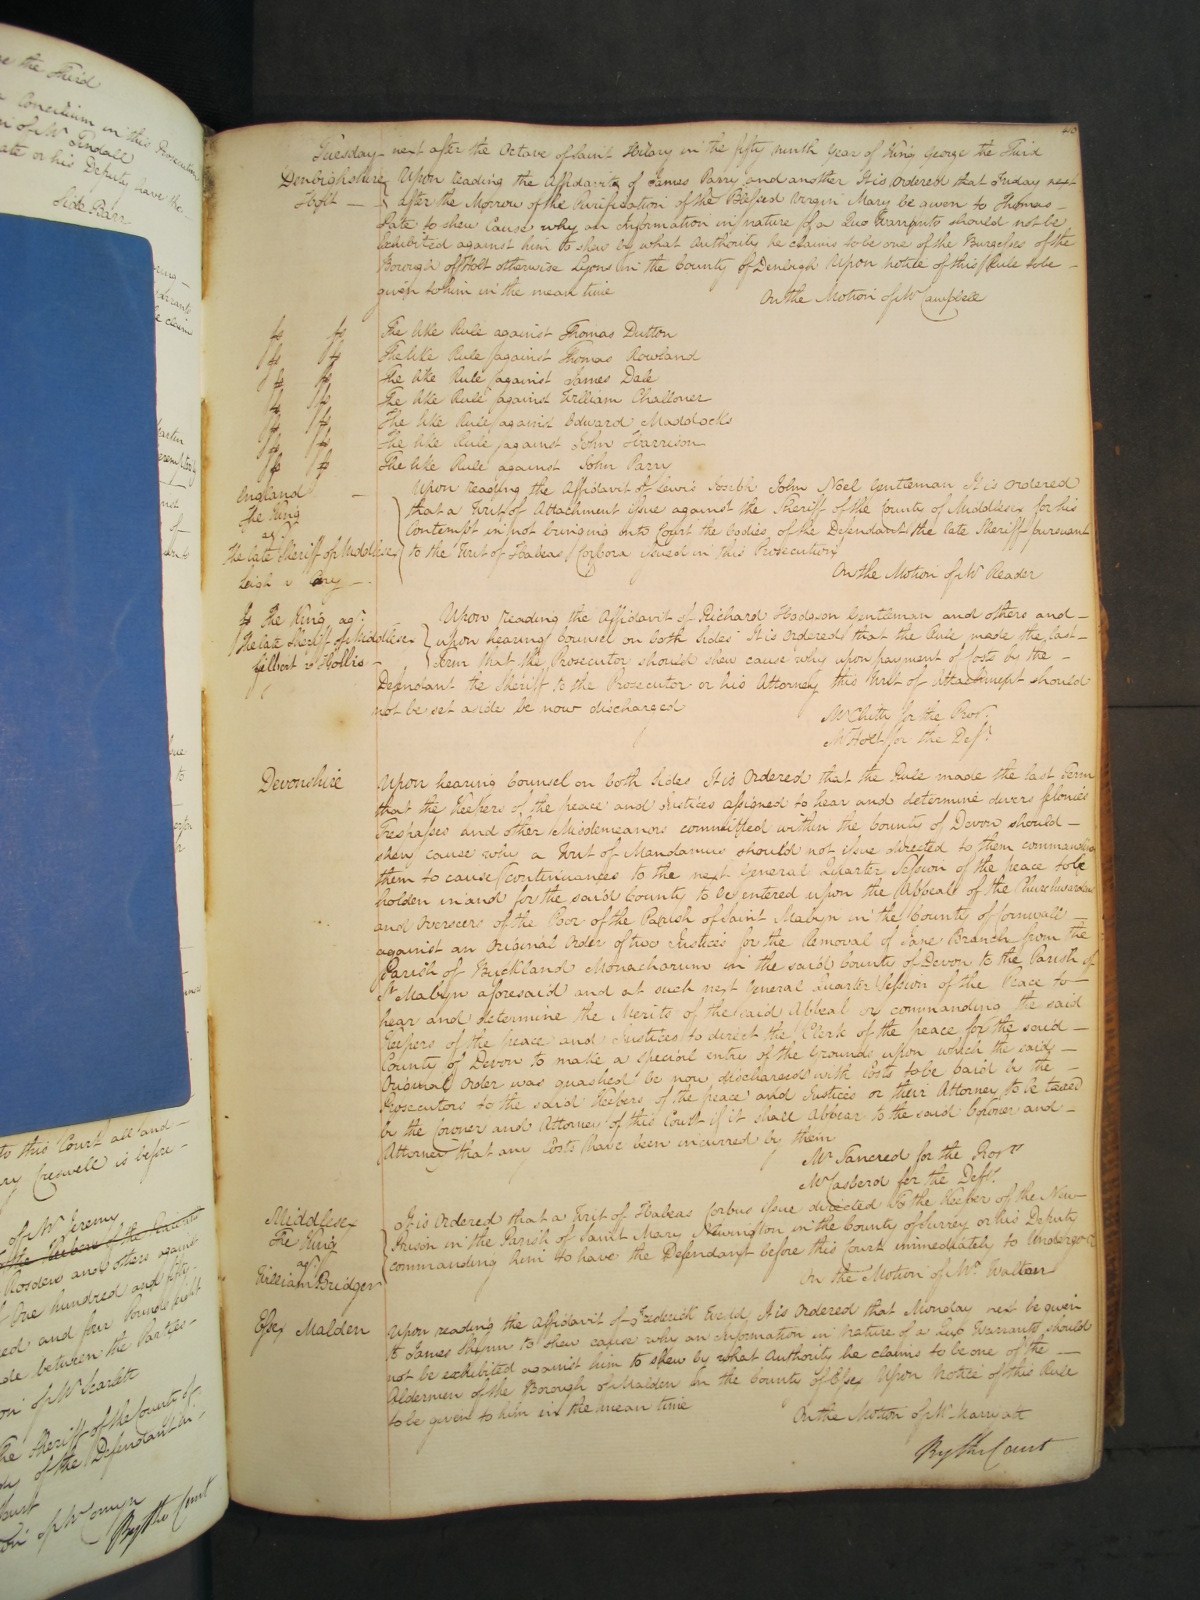 Tuesday next after the Octave of Saint Hilary in the fifty ninth Year of King George the Third
Denbighshire Upon reading the Affidavits of James Parry and another It is Ordered that Friday next
Holt after the Morrow of the Purification of the Blessed Virgin Mary be given to Thomas
Pate to shew Cause why an Information in nature of a Quo Warranto should not be
Exhibited against him to shew by what Authority he claims to be one of the Burgesses of the
Borough of Holt otherwise Lyons in the County of Denbigh Upon notice of this Rule to be
given to him in the mean time
On the Motion of Mr Campbell
The like Rule against Thomas Dutton
The like Rule against Thomas Rowland
The like Rule against James Dale
The like Rule against William Challoner
The like Rule against Edward Maddocks
The like Rule against John Harrison
The like Rule against John Parry
England Upon reading the Affidavit of Lewis Joseph John Noel Gentleman It is Ordered
The King that a Writ of Attachment issue against the Sheriff of the County of Middlesex for his
agt Contempt in not bringing into Court the bodies of the Defendants the late Sheriff pursuant
The late Sheriff of Middlesex to the Writ of Habeas Corpora issued in this Prosecution
Leigh v Cary
On the Motion of Mr Reader
The King agt Upon reading the Affidavit of Richard Hodson Gentleman and others and
The late Sheriff of Middlesex upon hearing Counsel on both sides It is Ordered that the Rule made the last
Gilbert v Hollis Term that the Prosecutor should shew cause why upon payment of Costs by the
Defendant the Sheriff to the Prosecutor or his Attorney this Writ of Attachment should
not be set aside be now discharged
Mr Chitty for the Pror
Mr Holt for the Deft
Devonshire Upon hearing Counsel on both sides It is Ordered that the Rule made the last Term
that the Keepers of the peace and Justices assigned to hear and determine divers felonies
Trespasses and other Misdemeanors committed within the County of Devon should
shew cause why a Writ of Mandamus should not issue directed to them commanding
them to cause continuances to the next General Quarter Session of the peace to be
holden in and for the said County to be entered upon the Appeal of the Churchwardens
and Overseers of the Poor of the Parish of Saint Mabyn in the County of Cornwall
against an Original Order of two Justices for the Removal of Jane Branch from the
Parish of Buckland Monachorum in the said County of Devon to the Parish of
St Mabyn aforesaid and at such next General Quarter Session of the Peace to
hear and determine the Merits of the said Appeal or commanding the said
Keepers of the peace and Justices to direct the Clerk of the peace for the said
County of Devon to make a special entry of the Grounds upon which the said
Original Order was quashed be now discharged with Costs to be paid by the
Prosecutors to the said Keepers of the peace and Justices or their Attorney to be taxed
by the Coroner and Attorney of this Court if it shall Appear to the said Coroner and
Attorney that any Costs have been incurred by them
Mr Tancred for the Prors
Mr Casberd for the Defts
Middlesex It is Ordered that a Writ of Habeas Corpus issue directed to the Keeper of the New
The King Prison in the Parish of Saint Mary Newington in the County of Surrey or his Deputy
agt commanding him to have the Defendant before this Court immediately to Undergo &c
William Bridger
On the Motion of Mr Walton
Essex Malden Upon reading the Affidavit of Frederick It is Ordered that Monday next be given
to James to shew cause why an Information in Nature of a Quo Warranto should
not be exhibited against him to shew by what Authority he claims to be one of the
Aldermen of the Borough of Malden in the County of Essex Upon Notice of this Rule
to be given to him in the mean time
On the Motion of Mr Marryatt
By the Court
the Third
Concilium in this Prosecution
of Mr Tindall
or his Deputy have the
Side Barr
to this Court all and
Creswell is before
of Mr Jeremy
and others against
One hundred and fifty
and four pounds eight
between the Parties
of Mr Scarlett
The Sheriff of the County of
of the Defendant
Court
of Mr
By the Court